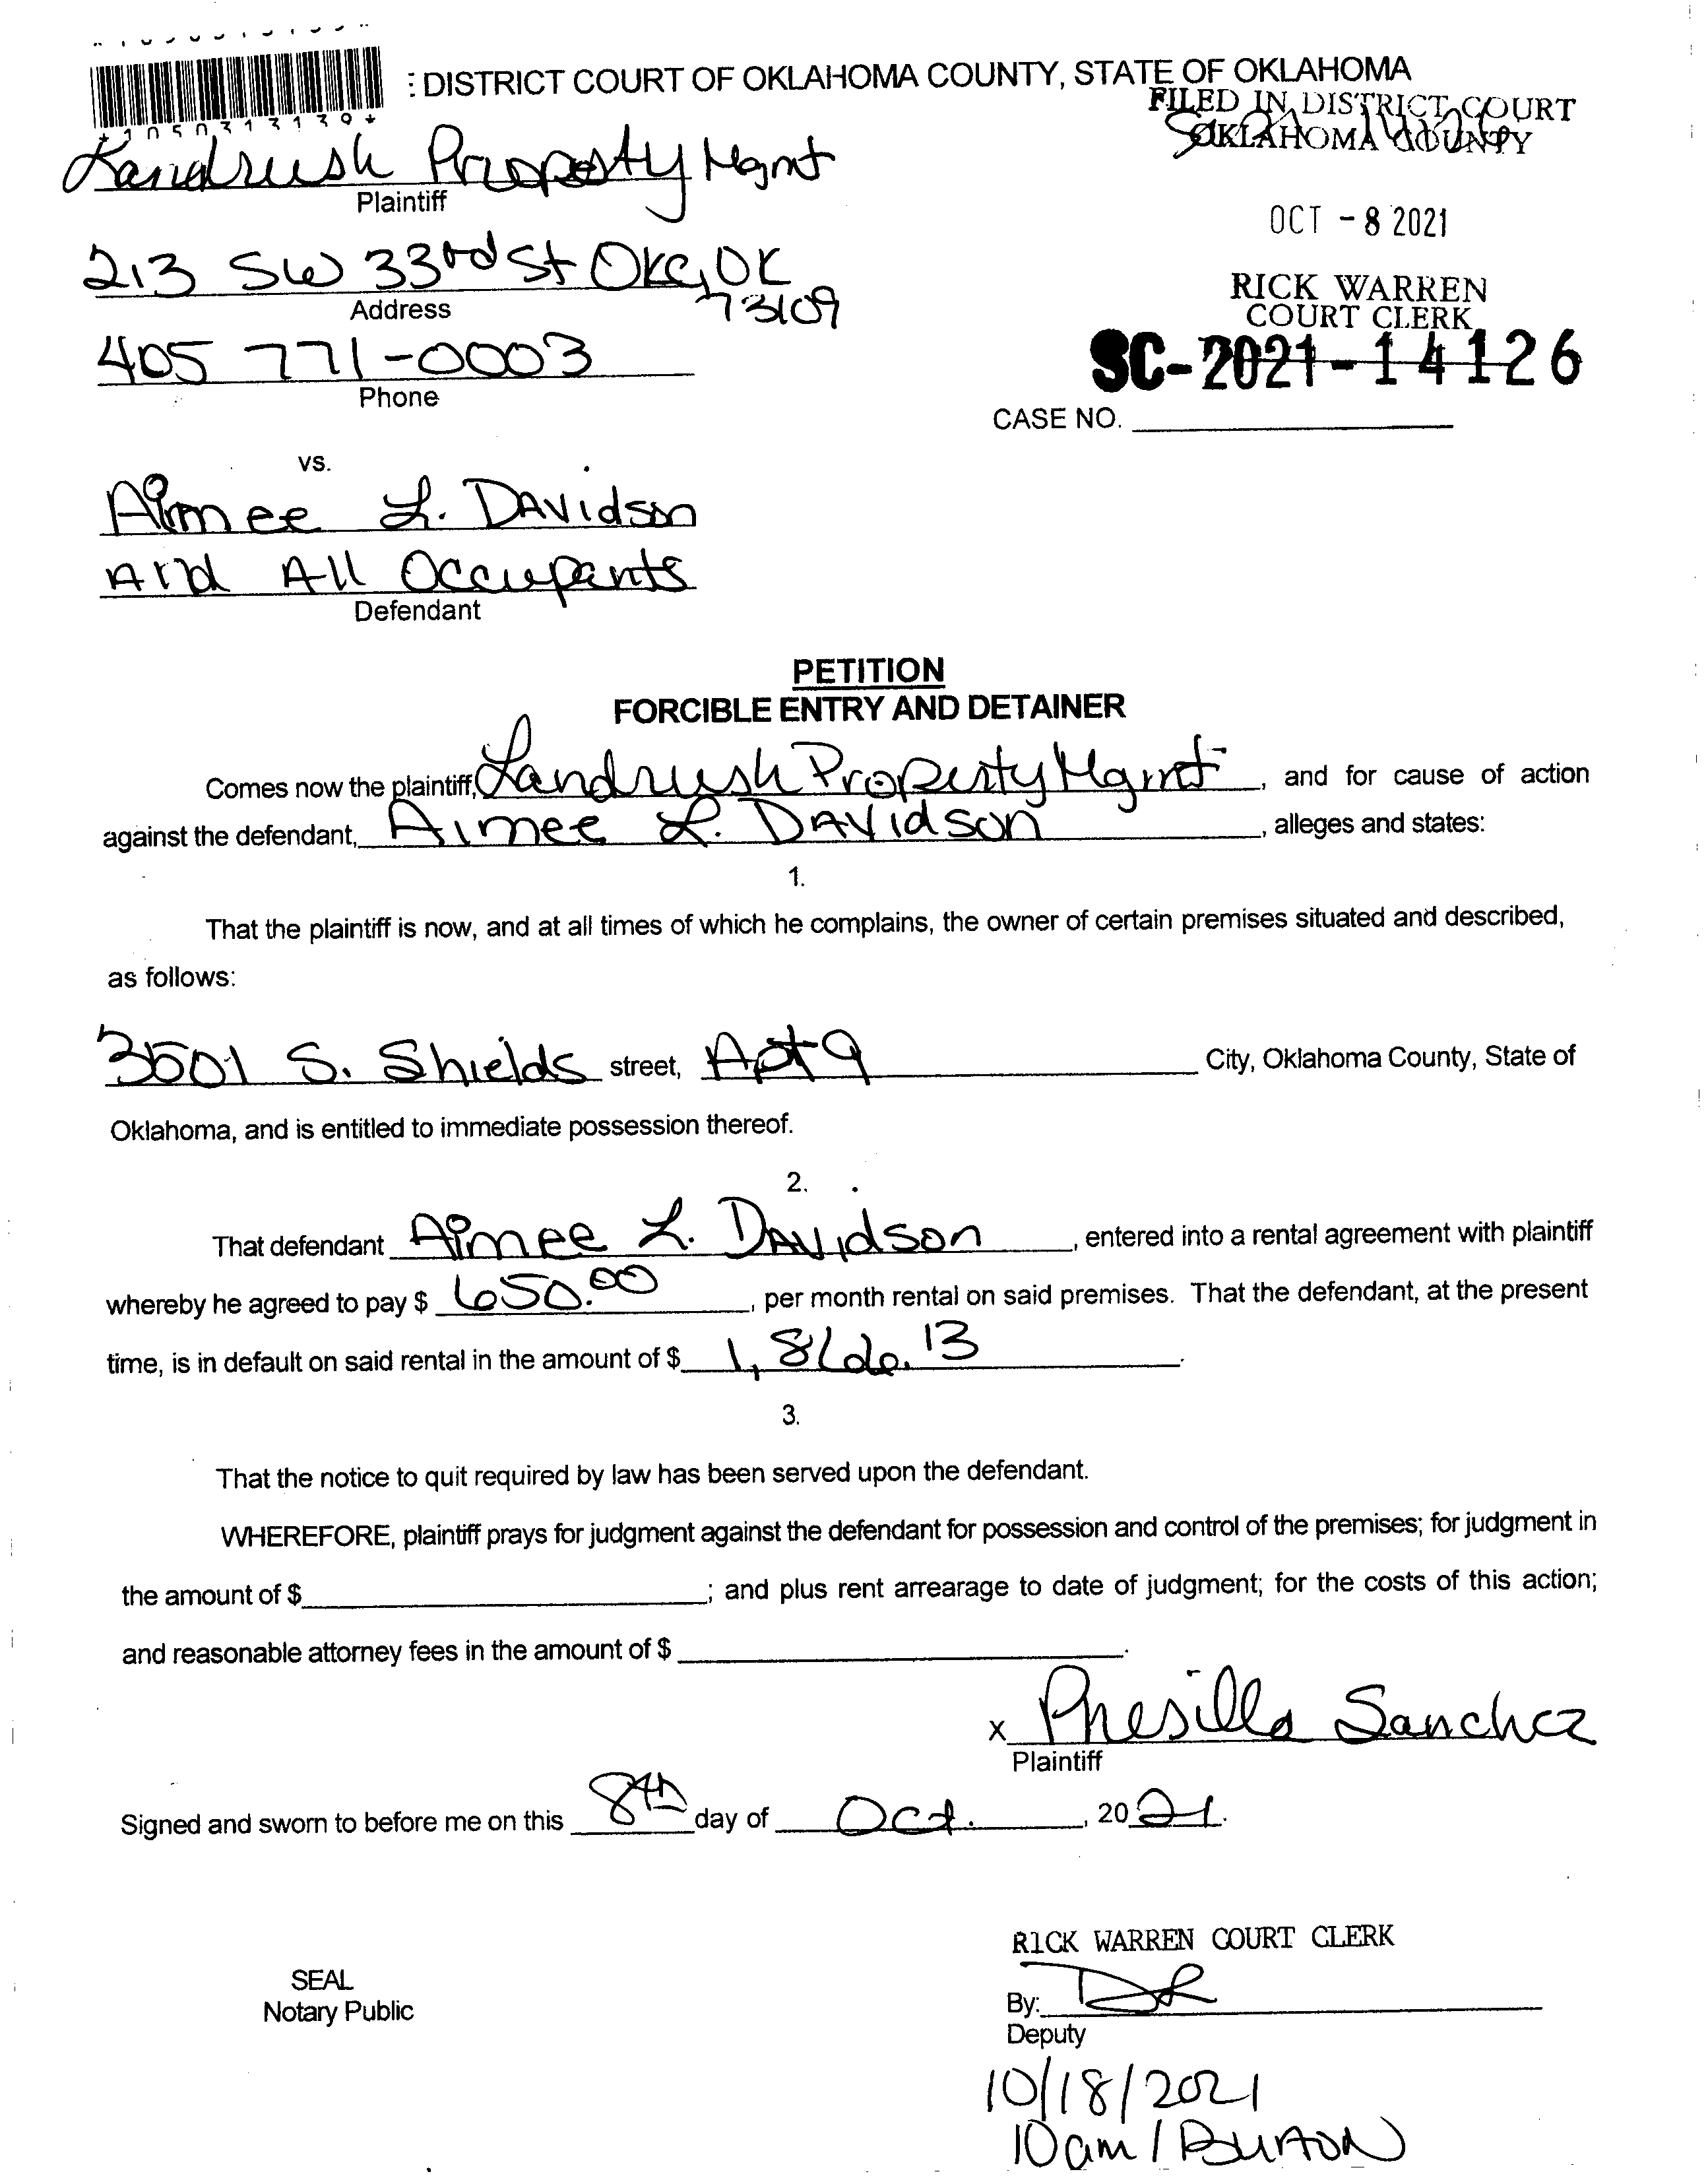 : DISTRICT COURT OF OKLAHOMA COUNTY, STATE OF OKLAHOMA
FILED IN DISTRICT COURT
OKLAHOMA COUNTY
*1050313139*
Landrush Property Mgmt
Plaintiff
OCT - 8 2021
213 SW 33rd St OKC, OK
73109
Address
RICK WARREN
COURT CLERK
405 771-0003
Phone
SC-2021-14126
CASE NO.
vs.
Aimee L. Davidson
And All Occupants
Defendant
PETITION
FORCIBLE ENTRY AND DETAINER
Comes now the plaintiff, Landrush Property Mgmt, and for cause of action
against the defendant, Aimee L. Davidson, alleges and states:
1.
That the plaintiff is now, and at all times of which he complains, the owner of certain premises situated and described,
as follows:
3501 S. Shields street, Apt 9 City, Oklahoma County, State of
Oklahoma, and is entitled to immediate possession thereof.
2.
That defendant Aimee L. Davidson, entered into a rental agreement with plaintiff
whereby he agreed to pay $ 650.00, per month rental on said premises. That the defendant, at the present
time, is in default on said rental in the amount of $ 1,866.13.
3.
That the notice to quit required by law has been served upon the defendant.
WHEREFORE, plaintiff prays for judgment against the defendant for possession and control of the premises; for judgment in
the amount of $; and plus rent arrearage to date of judgment; for the costs of this action;
and reasonable attorney fees in the amount of $.
x Presilla Sanchez
Plaintiff
Signed and sworn to before me on this 8th day of Oct., 2021.
RICK WARREN COURT CLERK
SEAL
Notary Public
By:
Deputy
10/18/2021
10am / Burton